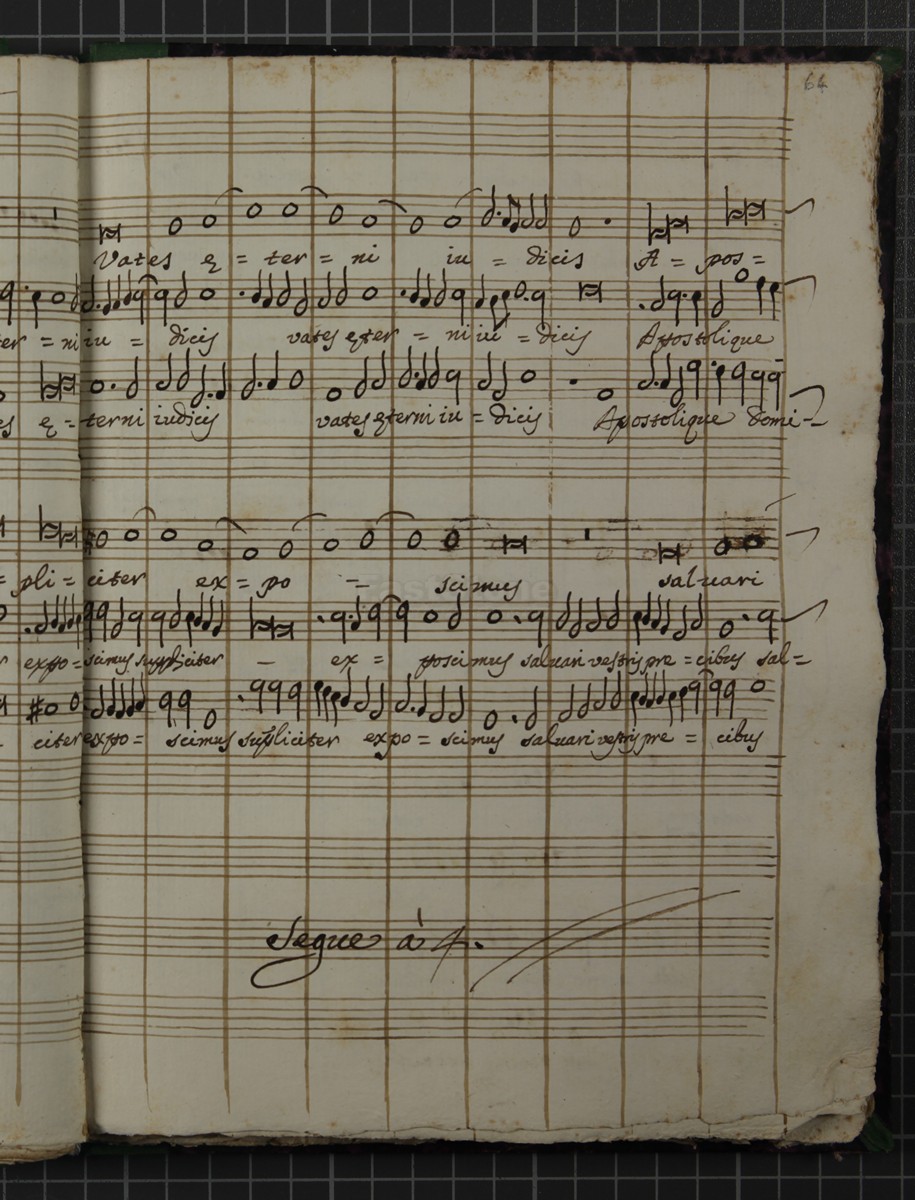 64
Vates ę = ter = ni iu = dicis A = pos =
er = ni iu = dicis vates ęter = ni iu = dicis Apostolique
es ę = terni iudicis vates ęterni iu = dicis Apostolique domi =
= pli = citer ex = po = scimus saluari
r expo = scimus suppliciter ex = poscimus saluari vestris pre = cibus sal =
citer expo = scimus supliciter expo = scimus saluari vestris pre = cibus
Segue à 4.